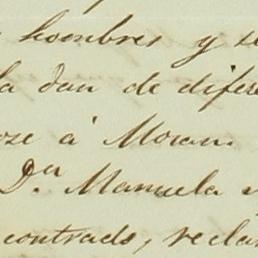 hombres y se
la dan de difere
ose à Moran.
Dª Manuela
contrado, recla